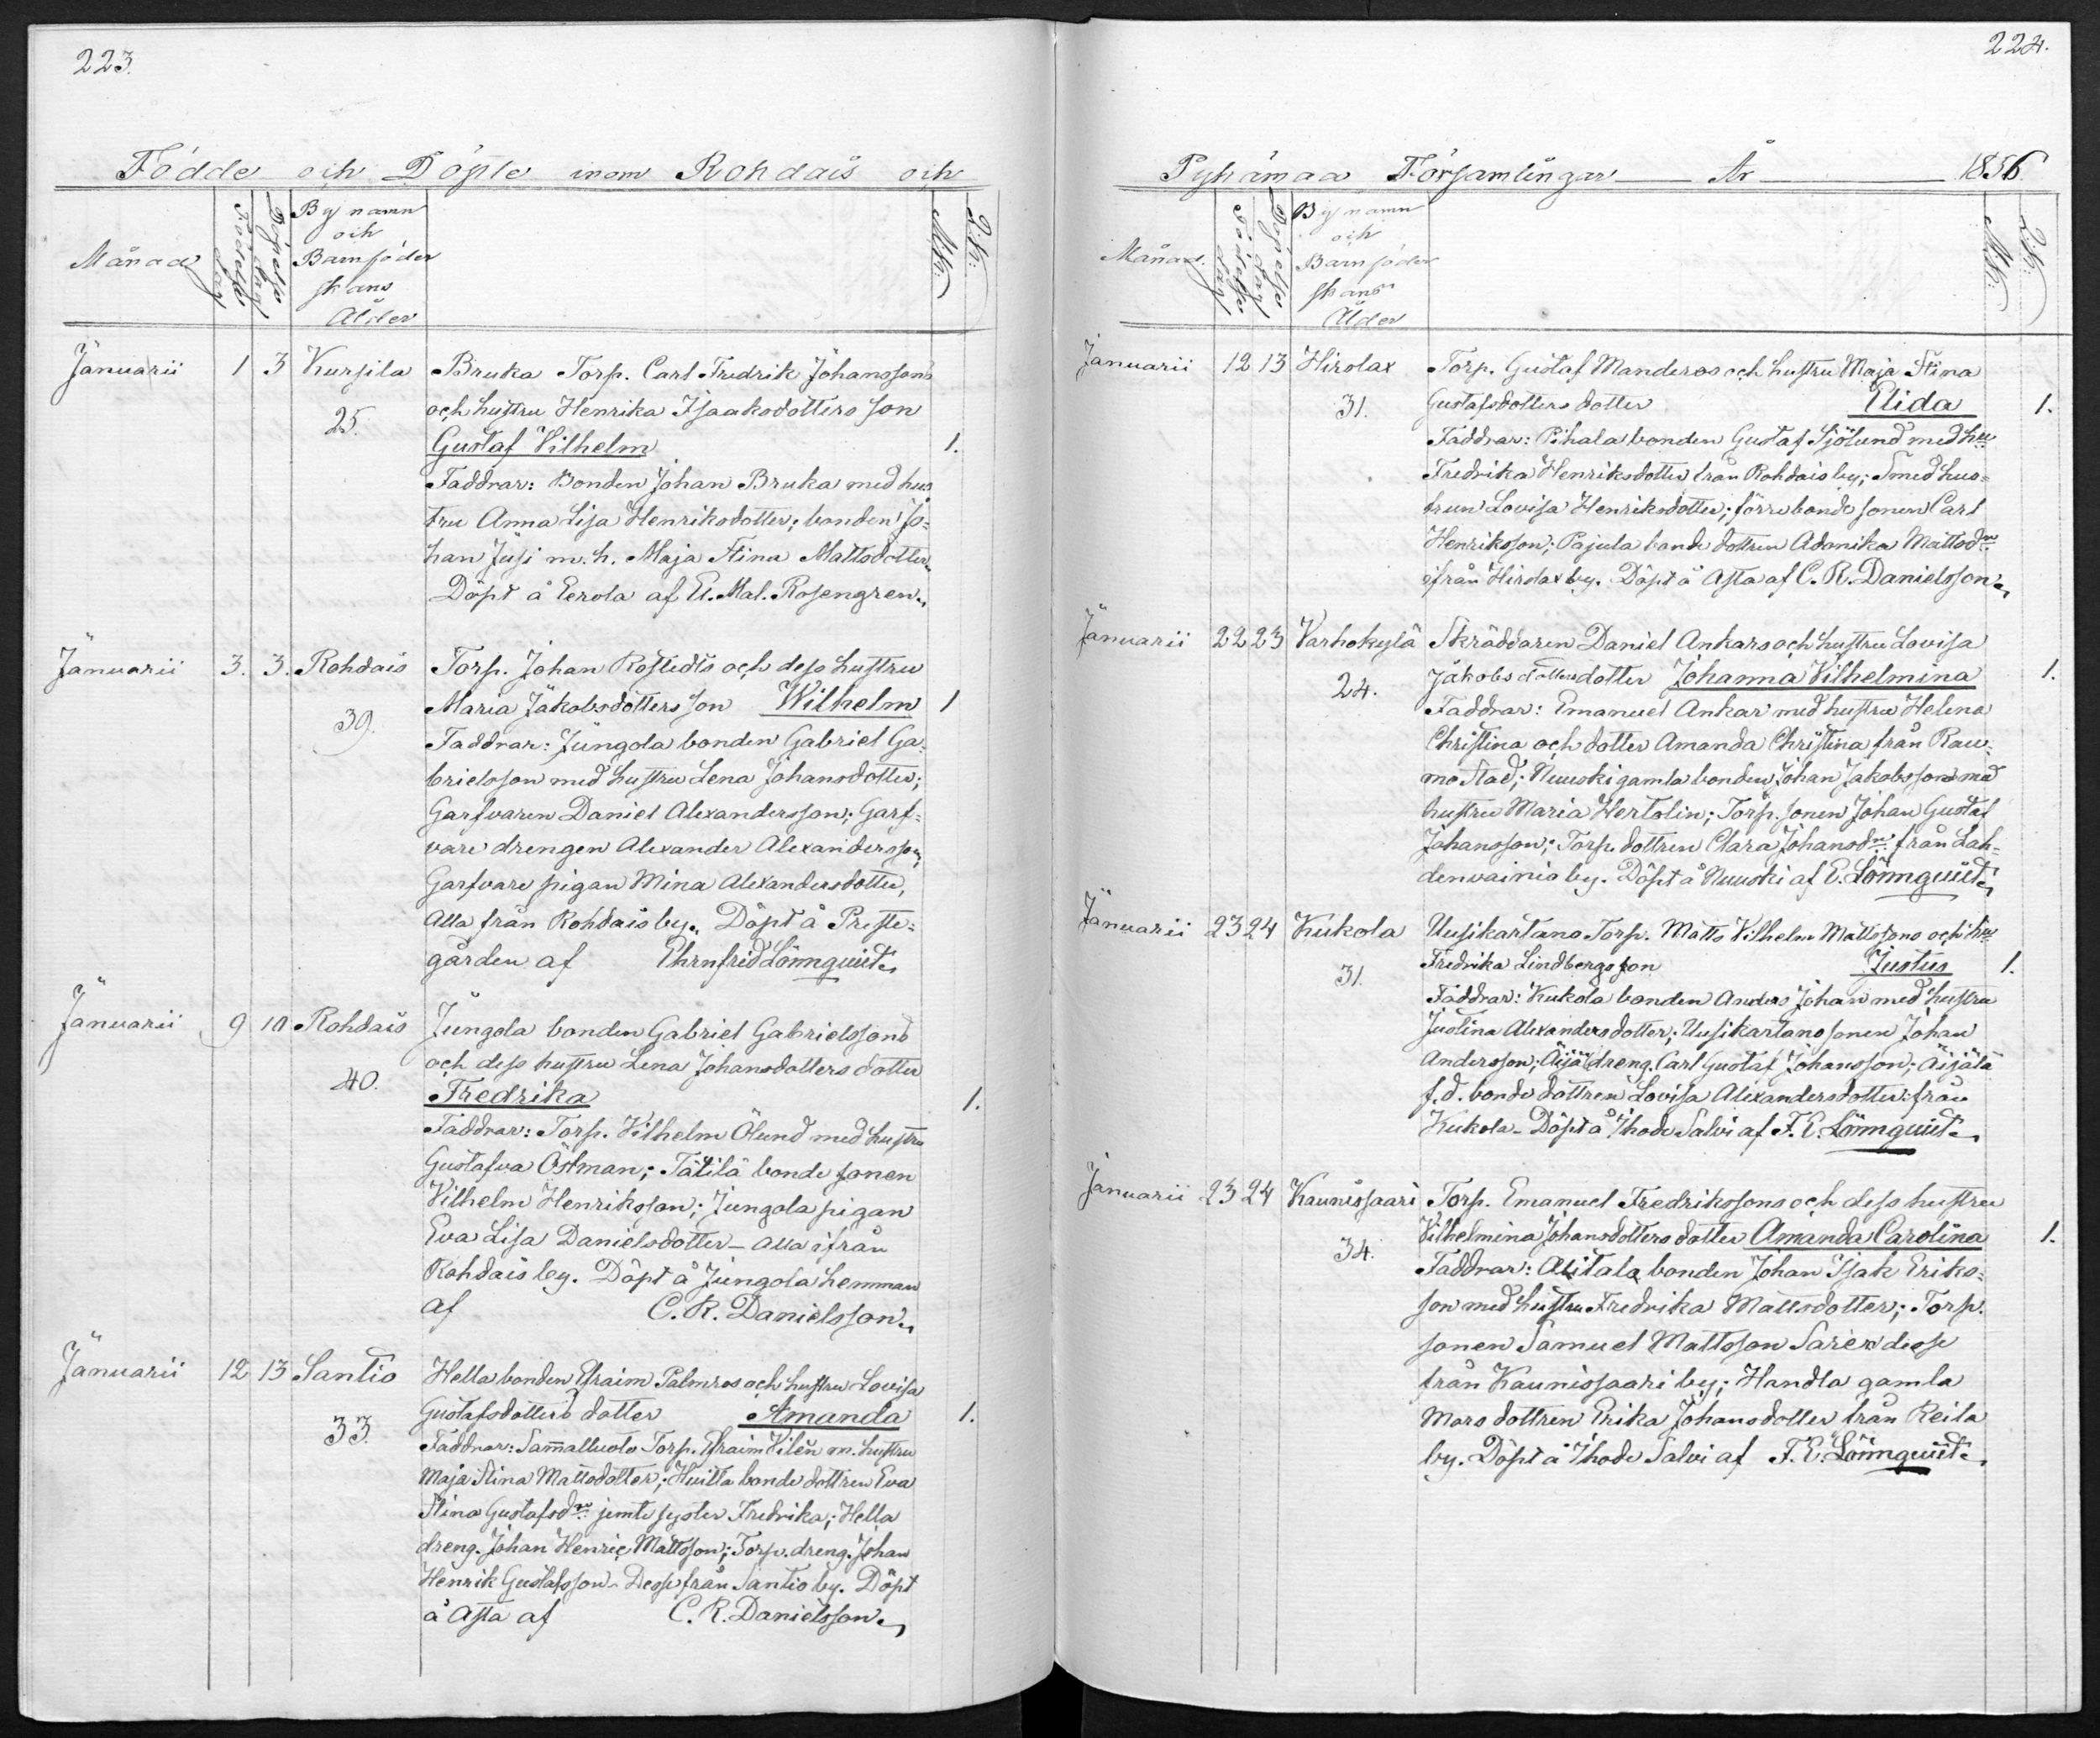 223.
Födde och Döpte inom Rohdais och
Månad
Födelse dag
Döpelse dag
By namn
och
Barnföder
skans
Ålder
Mk:
Qk:
Januarii 1 3 Kursila Bruka Torp. Carl Fredrik Johanssons
25. och hustru Henrika Isaaksdotters son
Gustaf Vilhelm 1.
Faddrar: Bonden Johan Bruka med hus
tru Anna Lisa Henriksdotter; bonden Jo=
han Jusi m. h. Maja Stina Mattsdotter.
Döpt å Eerola af El. Mal. Rosengren.
Januarii 3. 3. Rohdais Torp. Johan Rostedts och dess hustru
39. Maria Jakobsdotters son Wilhelm 1
Faddrar: Jungola bonden Gabriel Ga=
brielsson med hustru Lena Johansdotter;
Garfvaren Daniel Alexandersson; Garf=
vare drengen Alexander Alexandersson,
Garfvare pigan Mina Alexandersdotter,
Alla från Rohdais by. Döpt å Preste=
gården af Ehrnfrid Lönnquist.
Januarii 9 10 Rohdais Jungola bonden Gabriel Gabrielssons
och dess hustru Lena Johansdotters dotter
40. Fredrika 1.
Faddrar: Torp. Vilhelm Ölund med hustru
Gustafva Östman; Tätilä bonde sonen
Vilhelm Henriksson; Jungola pigan
Eva Lisa Danielsdotter – Alla ifrån
Rohdais by. Döpt å Jungola hemman
af C. R. Danielsson.
Januarii 12 13 Santio Hella bonden Efraim Palmros och hustru Lovisa
33. Gustafsdotters dotter Amanda 1.
Faddrar: Sammalluoto Torp. Efraim Vilén m. hustru
Maja Stina Mattsdotter; Huitta bonde dottren Eva
Stina Gustafsdr jemte syster Fredrika; Hella
dreng. Johan Henric Mattsson; Torp. dreng. Johan
Henrik Gustafsson – Desse från Santio by. Döpt
å Asta af C. R. Danielsson.
224.
Pyhämaa Församlingar År 1856
Månad.
Födelse dag
Döpelse dag
By namn
och
Barnföder
skans
Ålder
Mk:
Qk:
Januarii 12 13 Hirslax Torp. Gustaf Manderos och hustru Maja Stina
31. Gustafsdotters dotter Elida 1.
Faddrar: Pihala bonden Gustaf Sjölund med hu
Fredrika Henriksdotter från Rohdais by; Smed hus=
trun Lovisa Henriksdotter; förre bonde sonen Carl
Henriksson; Pajula bonde dottren Adamika Mattsdr
ifrån Hirslax by. Döpt å Asta af C. R. Danielsson.
Januarii 22 23 Varhokylä Skräddaren Daniel Ankars och hustru Lovisa
24. Jakobs dotters dotter Johanna Vilhelmina 1.
Faddrar: Emanuel Ankar med hustru Helena
Christina och dotter Amanda Christina från Rau=
mo Stad; Nuuski gamla bonden Johan Jakobsson med
hustru Maria Hertolin; Torp. sonen Johan Gustaf
Johansson; Torp. dottren Clara Johansdr från Lah=
denvainio by. Döpt å Nuuski af E. Lönnquist.
Januarii 23 24 Kukola Uusikartano Torp. Matts Vilhelm Mattssons och hu
31. Fredrika Lindbergs son Justus 1.
Faddrar: Kukola bonden Anders Johan med hustru
Justina Alexanders dotter; Uusikartano sonen Johan
Andersson; Äijälä dreng. Carl Gustaf Johansson; Äijälä
f. d. bonde dottren Lovisa Alexandersdotter från
Kukola – Döpt å Ihode Salvi af F. E. Lönnquist.
Januarii 23 24 Kaunissaari Torp. Emanuel Fredrikssons och dess hustru
34. Vilhelmina Johansdotters dotter Amanda Carolina 1.
Faddrar: Alitalo bonden Johan Isak Eriks=
son med hustru Fredrika Mattsdotter; Torp.
sonen Samuel Mattsson Sarén desse
från Kaunissaari by; Handla gamla
mors dottren Erika Johansdotter från Reila
by. Döpt å Ihode Salvi af F. E. Lönnquist.